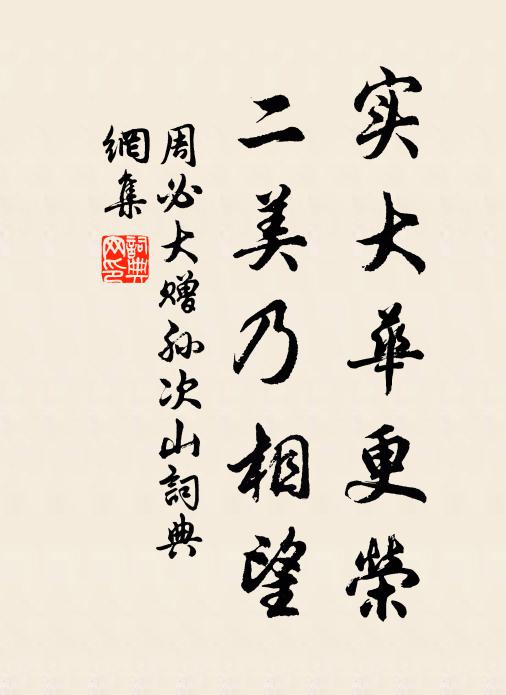 实大华更榮
二美乃相望
周必大赠孙次山詞典
網集
詞典
网印